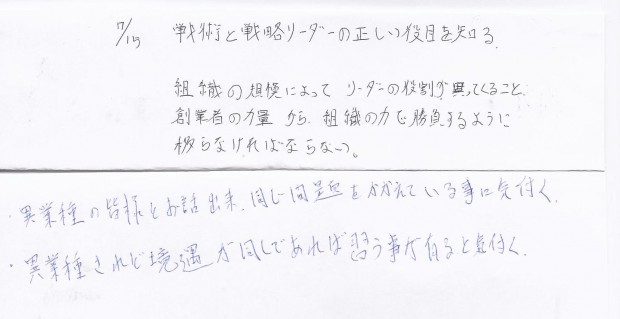 7/15 戦術と戦略リーダーの正しい役目を知る.
組織の規模によって リーダーの役割が異ってくること.
創業者の力量から.組織の力で勝負するように
移らなければならない。
・異業種の皆様とお話出来、同じ問題をかかえている事に気付く.
・異業種されど境遇が同じであれば習う事が有ると気付く.